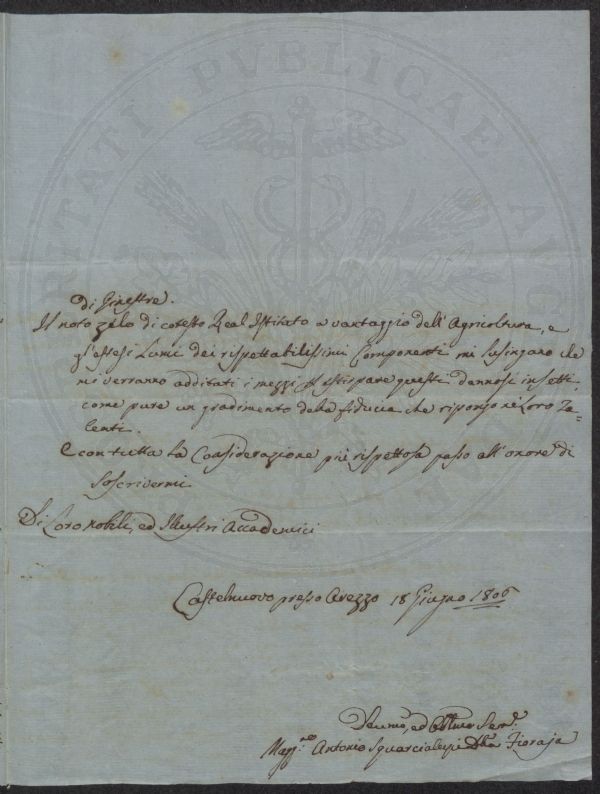 RITATI PVBLICAE AVG
di Ginestre.
Il noto zelo di cotesto Real Istituto a vantaggio dell'Agricoltura, e
gl'estesi Lumi dei rispettabilissimi Componenti mi lusingano che
mi verranno additati i mezzi d'estirpare questi dannosi insetti,
come pure un gradimento della fiducia che ripongo ne' Loro Ta=
lenti.
E con tutta la Considerazione più rispettosa passo all'onore di
soscrivermi
Di Loro nobili, ed Illustri Accademici
Castelnuovo presso Arezzo 18 Giugno 1806
Devmo, ed Servre
Magg.re Antonio Squarcialupi Fioraja